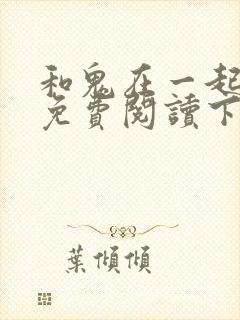 和鬼在一起
免費閱讀下
葉傾傾